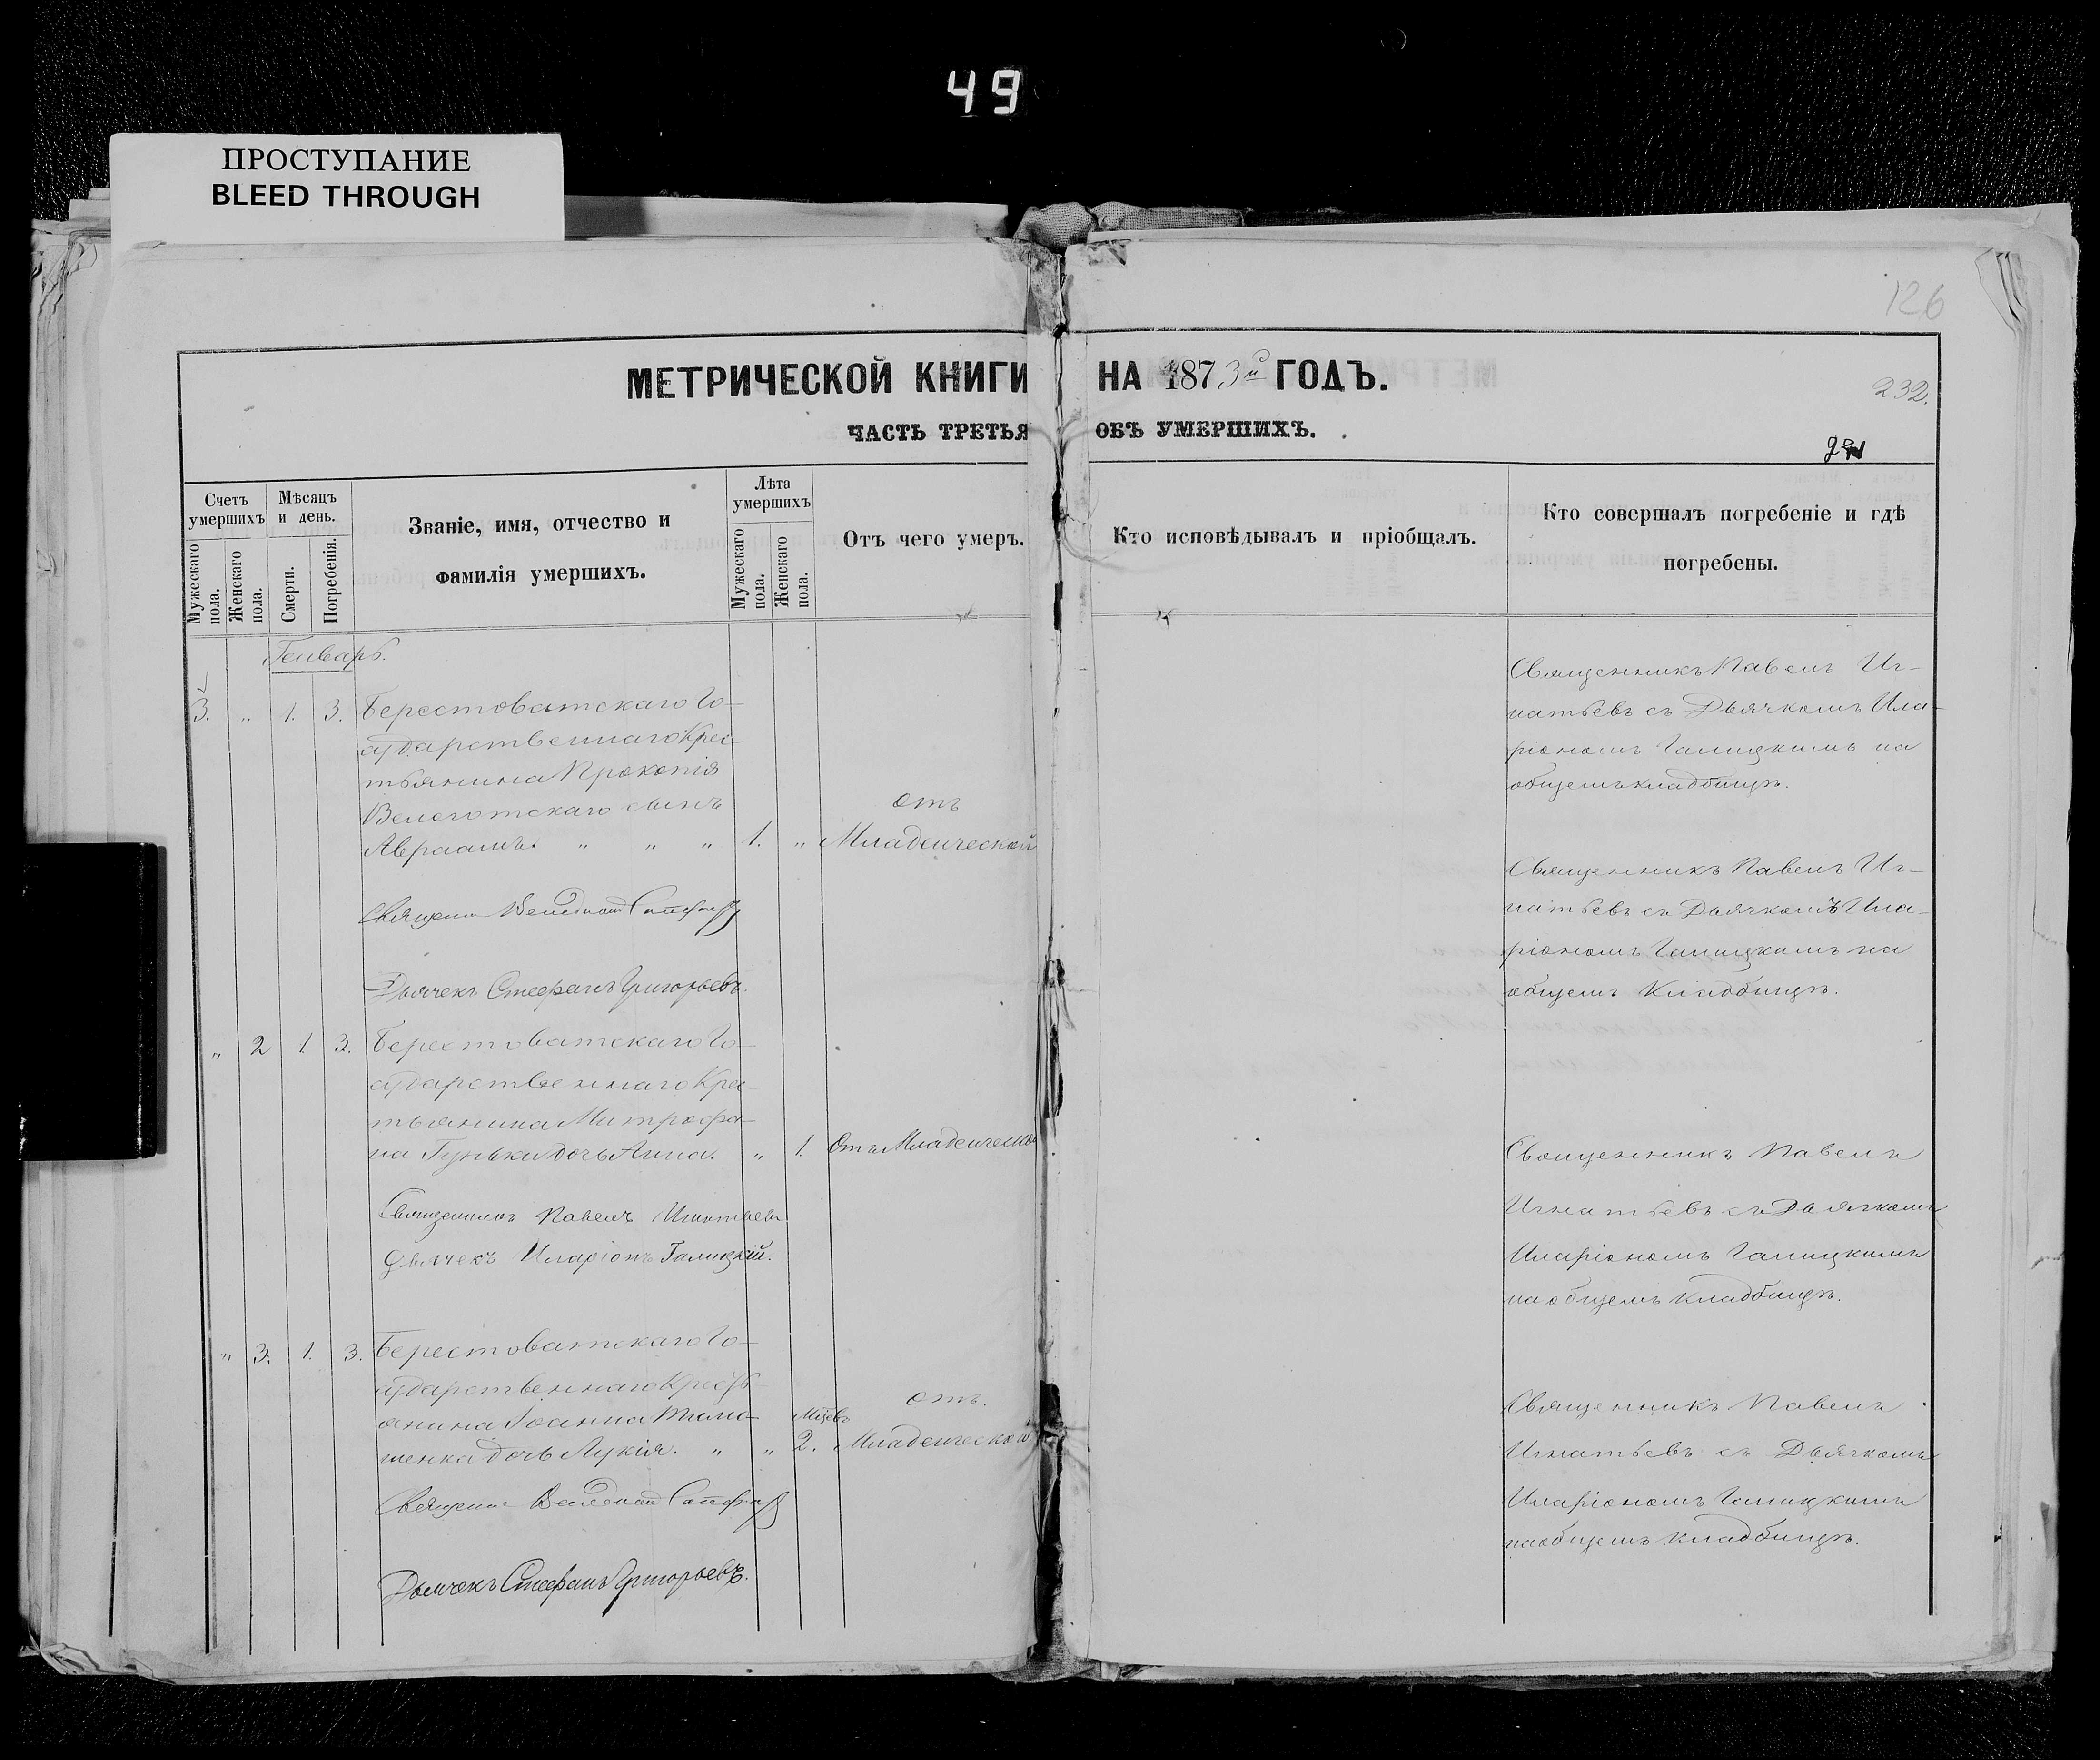 49
ПРОСТУПАНИЕ
BLEED THROUGH
126
МЕТРИЧЕСКОЙ КНИГИ НА 1873й ГОДЪ.
232.
ЧАСТЬ ТРЕТЬЯ ОБЪ УМЕРШИХЪ.
Счетъ умершихъ
Мужескаго пола.
Женскаго пола.
Мѣсяцъ и день.
Смерти.
Погребенія.
Званіе, имя, отчество и
фамилія умершихъ.
Лѣта умершихъ
Мужескаго пола.
Женскаго пола.
Отъ чего умеръ.
Кто исповѣдывалъ и пріобщалъ.
Кто совершалъ погребеніе и гдѣ
погребены.
Генварь.
3. „ 1. 3. Берестоватскаго Го-
сударственнаго Крес-
тьянина Прокопія
сынъ
Авраамъ. „ „ „ 1. „
отъ
Младенческой
Священникъ Павелъ Иг-
натьевъ съ Дьячкомъ Ила-
ріономъ Галицкимъ на
общемъ кладбищѣ.
Дьячекъ Стефанъ Григорьевъ.
Священникъ Павелъ Иг-
натьевъ съ Дьячкомъ Ила-
ріономъ Галицкимъ на
общемъ Кладбищѣ.
„ 2 1. 3. Берестоватскаго Го-
сударственнаго Крес-
тьянина Митрофа-
на Гунька дочь Анна. „ 1. Отъ Младенческой
Священникъ Павелъ Игнатьевъ
Дьячекъ Иларіонъ Галицкій.
Священникъ Павелъ
Игнатьевъ съ Дьячкомъ
Иларіономъ Галицкимъ
на общемъ Кладбищѣ.
„ 3. 1. 3. Берестоватскаго Го-
сударственнаго Кресть-
янина Іоанна Тимо-
шенка дочь Лукія. „ „ Мцевъ 2.
отъ.
Младенческой
Дьячекъ Стефанъ Григорьевъ.
Священникъ Павелъ
Игнатьевъ съ Дьячкомъ
Иларіономъ Галицкимъ
на общемъ кладбищѣ.